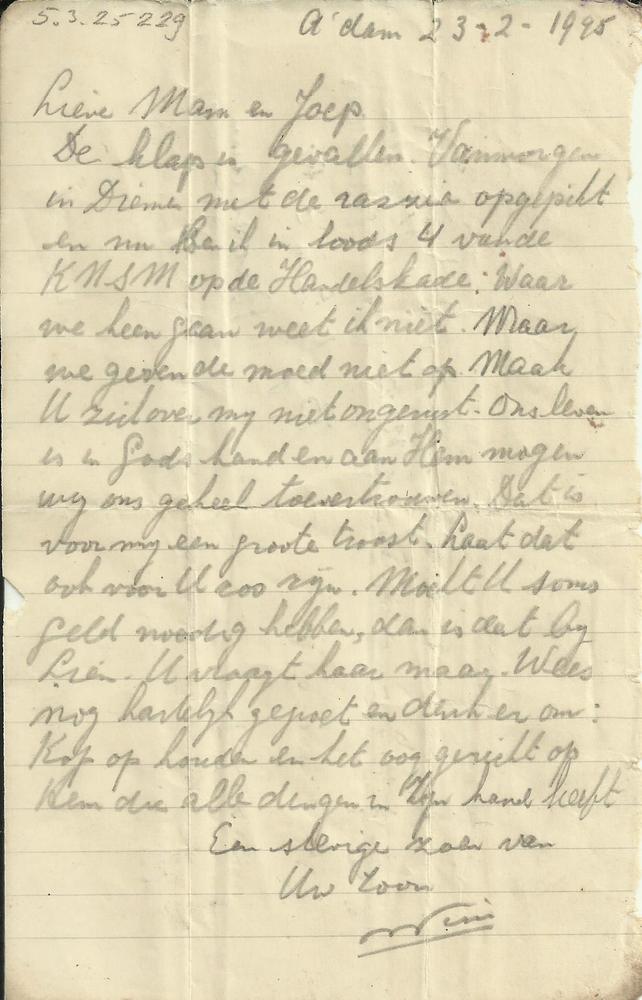 5.3.25 229
A'dam 23-2-1945
Lieve Mam en Joep
De klap is gevallen. Vanmorgen
in Diemen met de razzia opgepikt
en nu ben ik in loods 4 van de
KNSM op de Handelskade. Waar
we heen gaan weet ik niet. Maar
we geven de moed niet op. Maak
U zich over my niet ongerust. Ons leven
is in Gods hand en aan Hem mogen
wy ons geheel toevertrouwen. Dat is
voor my een groote troost. Laat dat
ook voor U zoo zyn. Mocht U soms
geld noodig hebben, dan is dat by
Lien. U vraagt haar maar. Wees
nog hartelyk gegroet en denk er om:
Kop op houden en het oog gericht op
Hem die alle dingen in Zyn hand heeft
Een stevige zoen van
Uw zoon
Wim